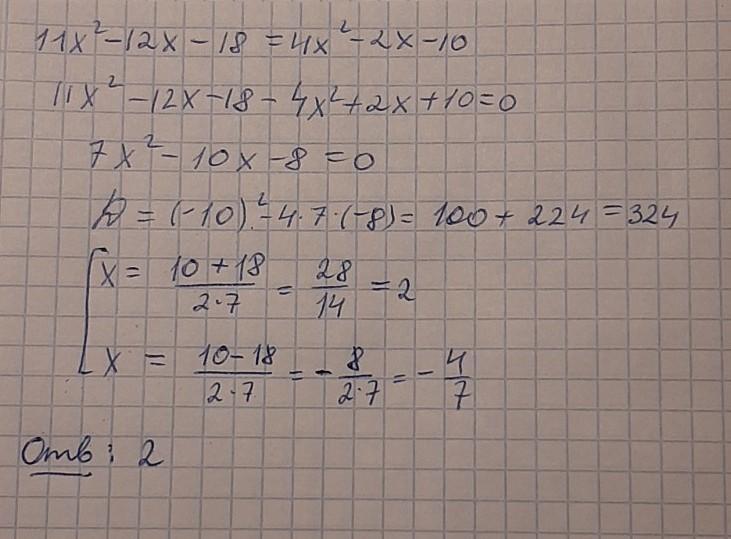 11x² - 12x - 18 = 4x² - 2x - 10
11x² - 12x - 18 - 4x² + 2x + 10 = 0
7x² - 10x - 8 = 0
D = (-10)² - 4·7·(-8) = 100 + 224 = 324
[ x = (10 + 18)/(2·7) = 28/14 = 2
x = (10 - 18)/(2·7) = -8/(2·7) = -4/7
Отв: 2